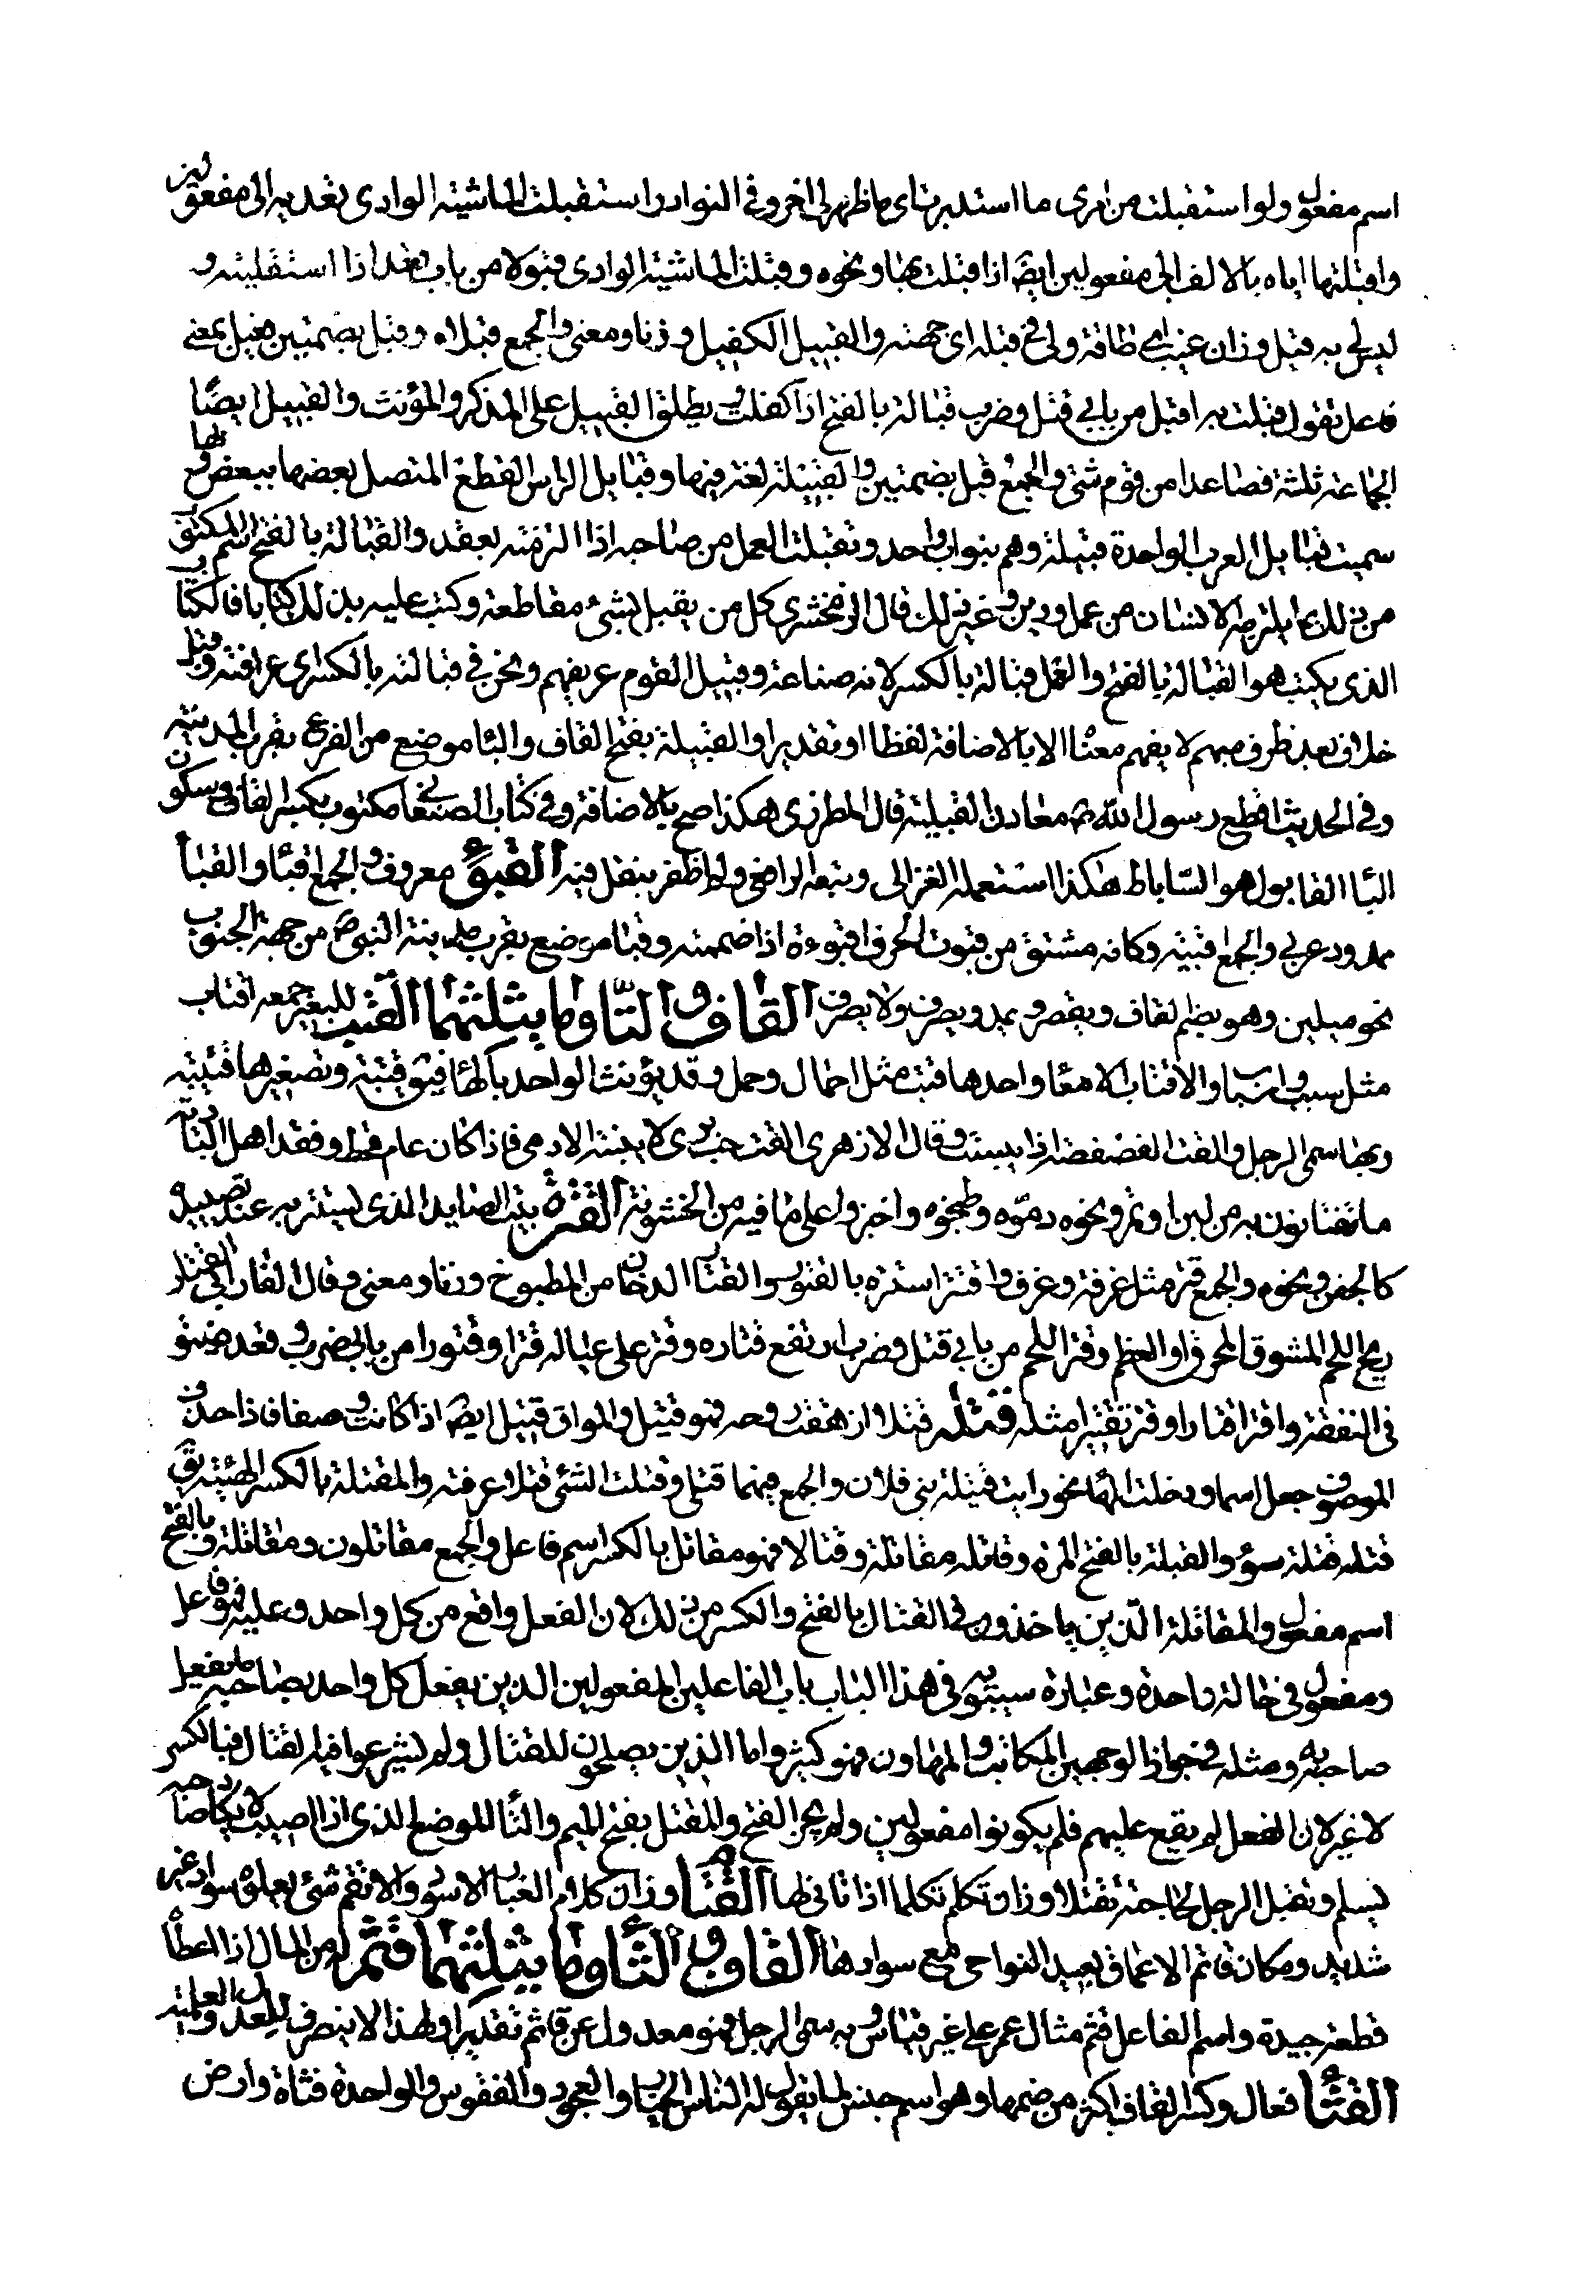 اسم مفعول ولو استقبلت من امرى ما استدبرت اى ما ظهر لى اخرو فى النوادر استقبلت الماشية الوادى تعديه الى مفعولين
واقبلتها اياه بالالف الى مفعولين ايضا اذا اقبلت بها ونحوه وقبلت الماشية الوادى قبولا من باب قعد اذا استقبلته و
ليس لى به قبل وزان عنب اى طاقة ولى فى قبله اى جهته والقبيل الكفيل وزنا ومعنى والجمع قبلاء وقبل بضمتين فعيل بمعنى
فاعل تقول قبلت به اقبل من بابى قتل وضرب قبالة بالفتح اذا كفلت ويطلق القبيل على المذكر والمؤنث والقبيل ايضا
الجماعة ثلثة فصاعدا من قوم شتى والجمع قبل بضمتين والقبيلة لغة فيها وقبايل الراس القطع المتصل بعضها ببعض وبها
سميت قبايل العرب الواحدة قبيلة وهم بنواب واحد وتقبلت العمل من صاحبه اذا الزمته بعقد والقبالة بالفتح اسم المكتوب
من ذلك لما يلتزمه الانسان من عمل ودين وغير ذلك قال الزمخشرى كل من يقبل بشئ مقاطعة وكتب عليه بذلك كتابا فالكتاب
الذى يكتب هو القبالة بالفتح والعمل قبالة بالكسر لانه صناعة وقبيل القوم عريفهم ونحن فى قبالته بالكسر اى عرافته وقبل
خلاف بعد ظرف مبهم لا يفهم معناه الا بالاضافة لفظا او تقديرا والقبلية بفتح القاف والبا موضع من الفرع بقرب المدينة
وفى الحديث اقطع رسول الله ص معادن القبلية قال المطرزى هكذا صح بالاضافة وفى كتاب الصنغا مكتوب بكسر القاف وسكون
البا القابول هو الساباط هكذا استعمله الغزالى وتبعه الرافعى ولم اظفر بنقل فيه القبو معروف والجمع اقبا والقبا
ممدود عربى والجمع اقبية وكانه مشتق من قبوت الحرف اقبوه قبوا اذا ضممته وقبا موضع بقرب مدينة النبى ص من جهة الجنوب
نحو ميلين وهو بضم القاف ويقصر ويمد ويصرف ولا يصرف القاف والتا وما يثلثهما القتب للبعير جمعه اقتاب
مثل سبب واسباب والاقتاب الامعا واحدها قتب مثل احمال وحمل وقد يؤنث الواحد بالها فيق قتبة وتصغيرها قتيبة
وبها سمى الرجل والقت الفصفصة اذا يبست وقال الازهرى القت حب برى لا ينبته الادمى فاذا كان عام قحط وفقد اهل البادية
ما يقتاتون به من لبن او تمر ونحوه دقوه وطبخوه واجتزوا على ما فيه من الخشونة القترة بيت الصايد الذى يستتر به عند تصييده
كالخص ونحوه والجمع قتر مثل غرفة وغرف واقتترا ستتر بالقترة والقتار الدخان من المطبوخ وزنا ومعنى وقال الفارابى القتار
ريح اللحم المشوى المحرق او العظم وقتر اللحم من بابى قتل وضرب ارتفع قتاره وقتر على عياله قترا وقتورا من بابى ضرب وقعد ضيق
فى النفقة واقتر اقتارا وقتر تقتيرا مثله قتلته قتلا ازهقت روحه فهو قتيل والمراة قتيل ايضا اذا كانت وصفا فاذا حذف
الموصوف جعل اسما ودخلت الها نحو رايت قتيلة بنى فلان والجمع فيهما قتلى وقتلت الشئ قتلا عرفته والقتلة بالكسر الهيئة يق
قتله قتلة سوء والقتلة بالفتح المرة وقاتله مقاتلة وقتالا فهو مقاتل بالكسر اسم فاعل والجمع مقاتلون ومقاتلة وبالفتح
اسم مفعول والمقاتلة الذين ياخذون فى القتال بالفتح والكسر من ذلك لان الفعل واقع من كل واحد وعليه فهو فاعل
ومفعول فى حالة واحدة وعبارة سيبويه فى هذا الباب باب الفاعلين المفعولين الذين يفعل كل واحد بصاحبه ما يفعل
صاحبه به ومثله فى جواز الوجهين المكاتب والمهاون وهو كثير واما الذين يصلحون للقتال ولم يشرعوا فى القتال فبالكسر
لا غير لان الفعل لم يقع عليهم فلم يكونوا مفعولين ولم يجز الفتح والمقتل بفتح الميم والتا الموضع الذى اذا اصيب لا يكاد صاحبه
يسلم وتقتل الرجل لحاجته تقتلا وزان تكلم تكلما اذا تانى لها القتام وزان كلام الغبار الاسود والاقتم شئ يعلوه سواد غير
شديد ومكان قاتم الاعماق بعيد النواحى مع سوادها القاف والثا وما يثلثهما قثم له من المال اذا اعطاه
قطعة جيدة واسم الفاعل قثم مثال عمر على غير قياس وبه سمى الرجل فهو معدول عن قاثم تقديرا ولهذا لا ينصرف للعدل والعلمية
القثا فعال وكسر القاف اكثر من ضمها وهو اسم جنس لما يقول له الناس الخيار والعجور والفقوس والواحدة قثاة وارض